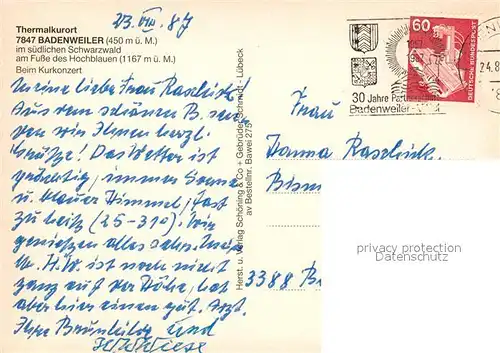 23. VIII. 87
Thermalkurort
7847 BADENWEILER (450 m ü. M.)
im südlichen Schwarzwald
am Fuße des Hochblauen (1167 m ü. M.)
Beim Kurkonzert
Meine liebe Frau
Aus dem schönen B. sen-
den wir Ihnen herzl.
Grüße! Das Wetter ist
prächtig, immer Sonne
u. blauer Himmel, fast
zu heiß (25-31°). Wir
genießen alles sehr. Mein
ist noch nicht
ganz auf der Höhe, hat
aber hier einen gut. Arzt.
Ihre Brunhilde und
Herst. u. Verlag Schöning & Co + Gebrüder Schmidt - Lübeck
av Bestellnr. Bawei 275
60
DEUTSCHE BUNDESPOST
30 Jahre
Badenweiler
24.8
Frau
Hanna
3388
privacy protection
Datenschutz